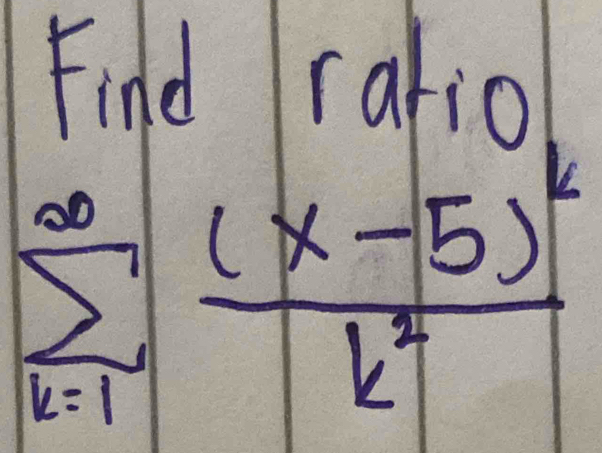 Find ratio
\sum_{k=1}^{\infty} \frac{(x-5)^k}{k^2}